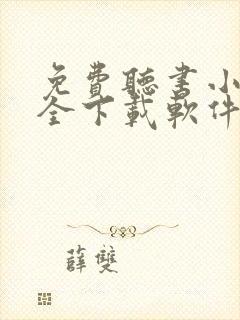 免費聽書小
全下載軟件
薛雙